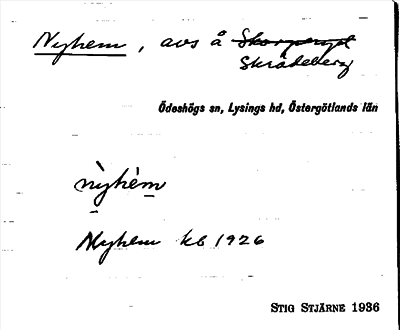 Nyhem, avs å Skorperyd
Skrädeberg
Ödeshögs sn, Lysings hd, Östergötlands län
nỳhèm
Nyhem kb 1926
STIG STJÄRNE 1936